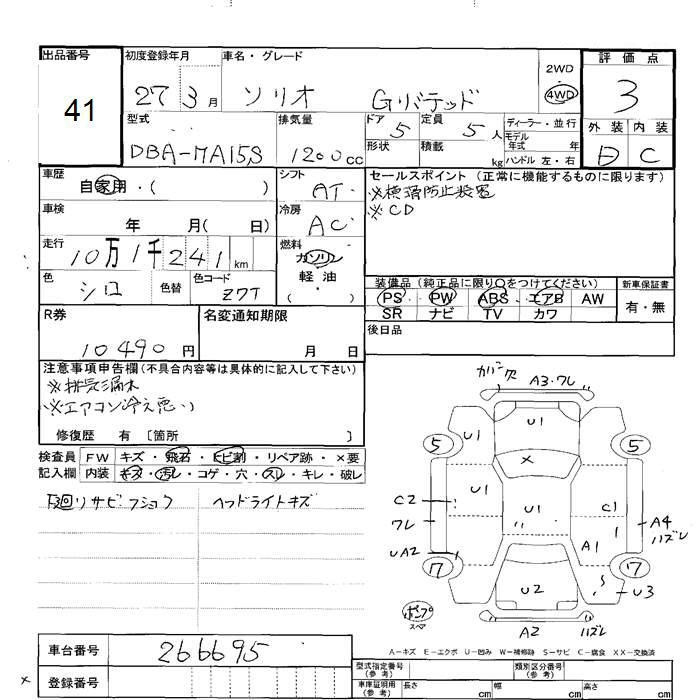 出品番号
41
初度登録年月
27 3月
車名・グレード
ソリオ Gリミテッド
2WD
4WD
評価点
3
外装 内装
D C
型式
DBA-MA15S
排気量
1200cc
ドア 5
形状
定員 5人
積載 kg
ディーラー・並行
モデル年式 年
ハンドル 左・右
車歴
自家用・( )
シフト
AT
セールスポイント(正常に機能するものに限ります)
※横滑防止装置
※CD
車検
年 月( 日)
冷房
AC
走行
10万1千241km
燃料
ガソリン
・
軽油
( )
色
シロ
色替
色コード
Z7T
装備品(純正品に限り○をつけてください)
PS PW ABS エアB AW
SR ナビ TV カワ
新車保証書
有・無
後日品
R券
10490円
名変通知期限
月 日
注意事項申告欄(不具合内容等は具体的に記入して下さい)
※排気漏れ
※エアコン冷え悪い
修復歴 有 〔箇所 〕
検査員記入欄
FW キズ・飛石・ヒビ割・リペア跡・×要
内装 キズ・汚レ・コゲ・穴・スレ・キレ・破レ
下廻リサビ・フショク
ヘッドライトキズ
カバー欠
A3・ワレ
U1
U1
5
5
×
U1
C2
ワレ
U1
C1
A4
ハズレ
UA2
A1
7
7
U3
U2
ポンプ
スペア
A2
ハズレ
A-キズ E-エクボ U-凹み W-補修跡 S-サビ C-腐食 XX-交換済
車台番号
266695
登録番号
×
型式指定番号(参考)
類別区分番号(参考)
車庫証明用(参考)
長さ cm
幅 cm
高さ cm